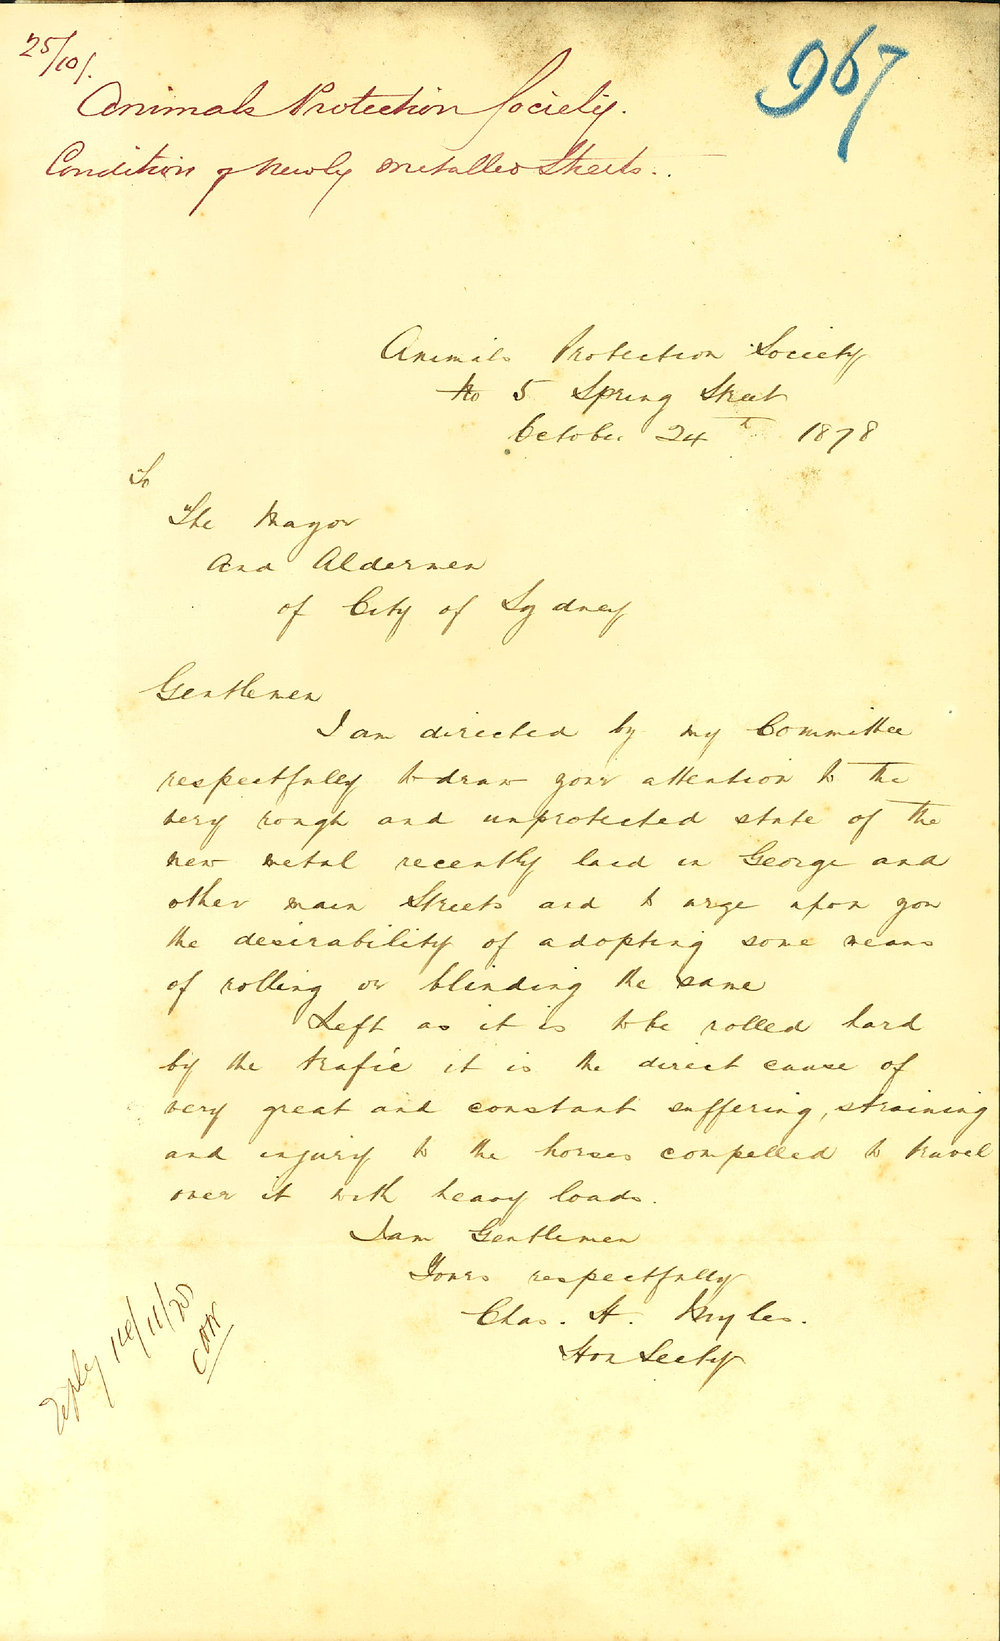 25/10/.
967
Animals Protection Society.
Condition of Newly metalled Streets.
Animals Protection Society
No 5 Spring Street
October 24th 1878
To
The Mayor
And Aldermen
of City of Sydney
Gentlemen
I am directed by my Committee
respectfully to draw your attention to the
very rough and unprotected state of the
new metal recently laid in George and
other main Streets and to urge upon you
the desirability of adopting some means
of rolling or blinding the same
Left as it is to be rolled hard
by the trafic it is the direct cause of
very great and constant suffering, straining
and injury to the horses compelled to travel
over it with heavy loads.
I am Gentlemen
Yours respectfully
Chas. H. Myles.
Hon Secty
Reply